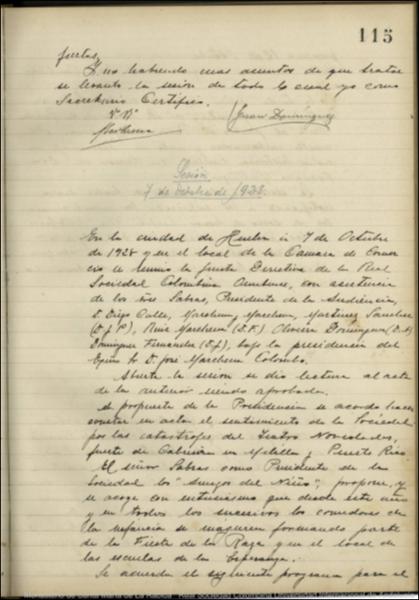 115
juntas.
Y no habiendo mas asuntos de que tratar
se levanto la sesion de todo lo cual yo como
Secretario Certifico.
Vº Bº
Marchena
Juan Dominguez
Sesión
7 de Octubre de 1928.
En la ciudad de Huelva á 7 de Octubre
de 1928 y en el local de la Camara de Comer
cio se reunio la Junta Directiva de la Real
Sociedad Colombina Onubense, con asistencia
de los Sres Sabras, Presidente de la Audiencia,
D. Diego Calle, Marchena, Martinez Sanchez
(D. J. P), Ruiz Marchena (D. F.) Oliveira Dominguez
Dominguez Fernandez (D. J.), bajo la presidencia del
D. José Marchena Colombo.
Abierta la sesion se dió lectura al acta
de la anterior siendo aprobada.
A propuesta de la Presidencia se acordó hacer
constar en acta el sentimiento de la Sociedad
por las catastrofes del Teatro Novedades,
fuerte de Cabrerizas en Melilla y Puerto Rico.
El señor Sabras como Presidente de la
Sociedad los "Amigos del Niño", propone, y
se acoge con entusiasmo que desde este año
y en todos los sucesivos los comedores de
la infancia se inauguren formando parte
de la Fiesta de la Raza y en el local de
las escuelas de la Esperanza.
Se acuerda el siguiente programa para el